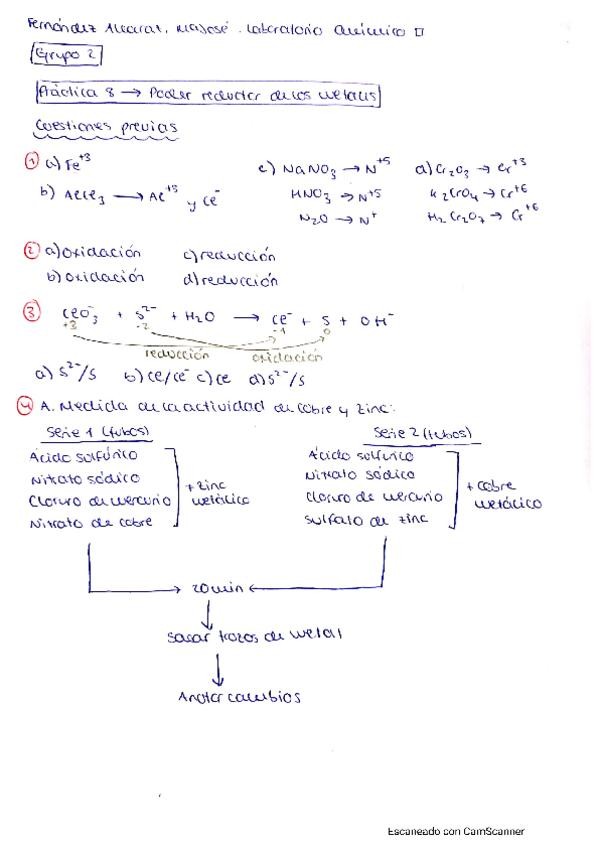 Fernández Alcaraz, MªJosé. Laboratorio Químico II
Grupo 2
Práctica 8 → Poder reductor de los metales
Cuestiones previas
① a) Fe⁺³ c) NaNO₃ → N⁺⁵ d) Cr₂O₃ → Cr⁺³
b) AlCl₃ → Al⁺³ y Cl⁻ HNO₃ → N⁺⁵ K₂CrO₄ → Cr⁺⁶
N₂O → N⁺ H₂Cr₂O₇ → Cr⁺⁶
② a) oxidación c) reducción
b) oxidación d) reducción
③ ClO₃⁻ + S²⁻ + H₂O → Cl⁻ + S + OH⁻
+3 -2 -1 0
reducción oxidación
a) S²⁻/S b) Cl/Cl⁻ c) Cl d) S²⁻/S
④ A. Medida de la actividad de cobre y zinc:
Serie 1 (tubos) Serie 2 (tubos)
Ácido sulfúrico Ácido sulfúrico
Nitrato sódico + zinc Nitrato sódico + cobre
Cloruro de mercurio metálico Cloruro de mercurio metálico
Nitrato de cobre Sulfato de zinc
20 min
Sacar trozos de metal
Anotar cambios
Escaneado con CamScanner